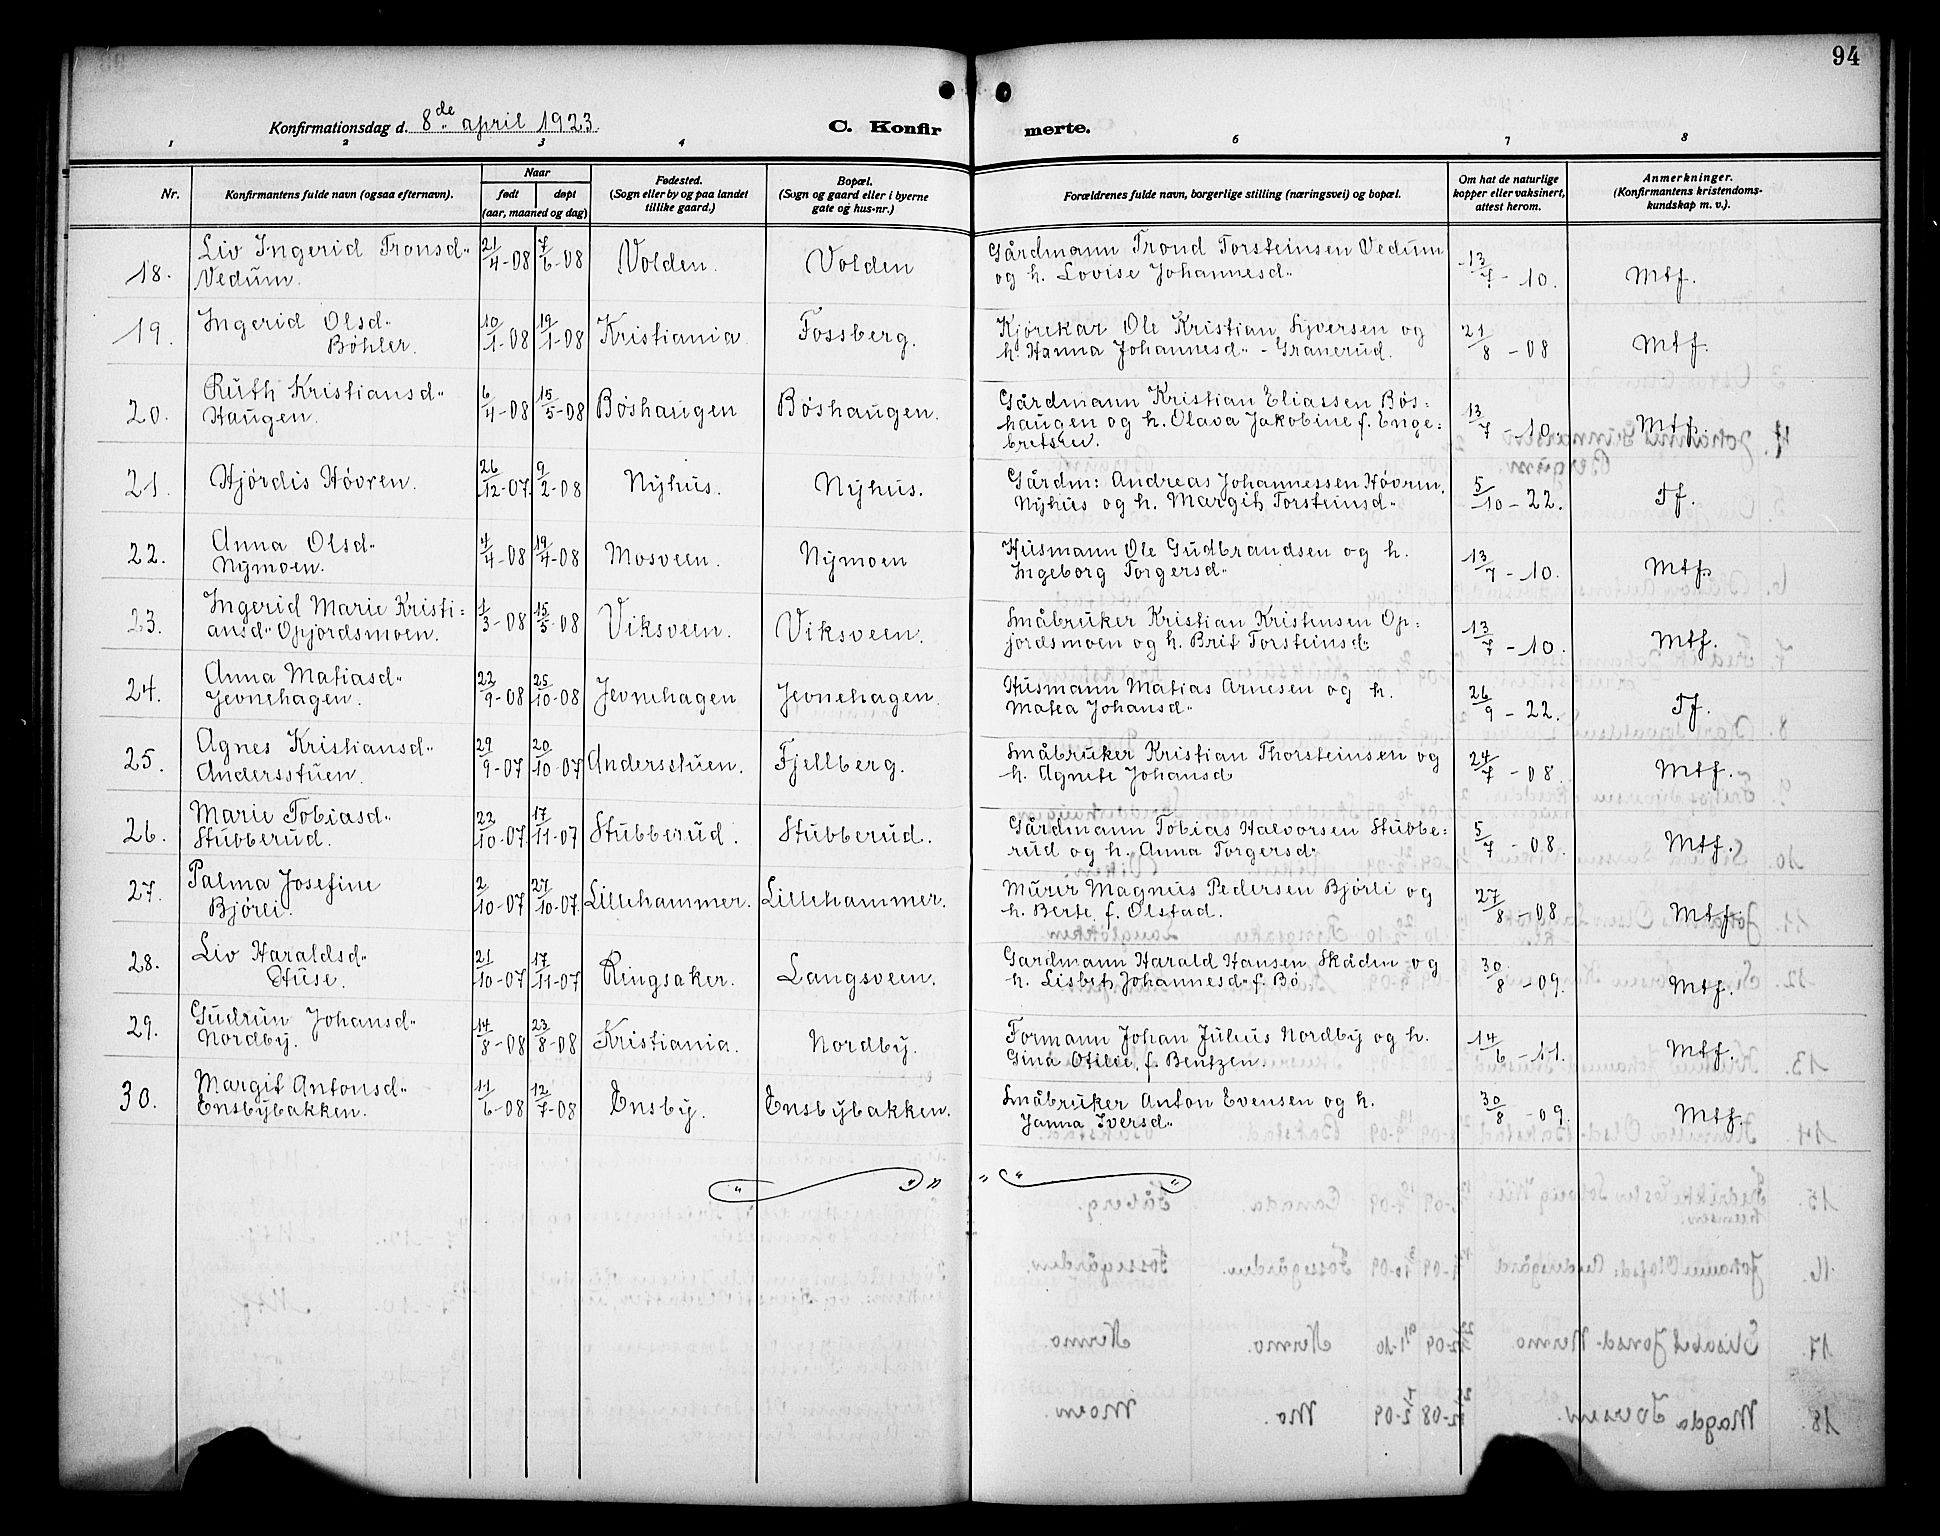 94
Konfirmationsdag d. 8de april 1923.
C. Konfir merte.
1 2 3 4 6 7 8
Nr. Konfirmantens fulde navn (ogsaa efternavn). Naar født døpt (aar, maaned og dag) Fødested. (Sogn eller by og paa landet tillike gaard.) Bopæl. (Sogn og gaard eller i byerne gate og hus-nr.) Forældrenes fulde navn, borgerlige stilling (næringsvei) og bopæl. Om hat de naturlige kopper eller vaksinert, attest herom. Anmerkninger. (Konfirmantens kristendoms-kundskap m. v.).
18. Liv Ingerid Tronsd" 21/4-08 7/6-08 Volden. Volden Gårdmann Trond Torsteinsen Vedum 13/7-10. Mtf.
Vedum. og h. Lovise Johannesd"
19. Ingerid Olsd" 10/1-08 19/1-08 Kristiania Fossberg. Kjørekar Ole Kristian Syversen og 21/8-08 Mtf.
Bøhler. h. Hanna Johannesd" - Granerud.
20. Ruth Kristiansd" 6/4-08 15/5-08 Bøshaugen Bøshaugen. Gårdmann Kristian Eliassen Bøs= 13/7-10. Mtf.
Haugen. haugen og h. Olava Jakobine f. Enge=
bretsen.
21. Hjørdis Høvren. 26/12-07. 9/2-08 Nyhus. Nyhus. Gårdm: Andreas Johannessen Høvren, 5/10-22. Tf.
Nyhus og h. Margit Torsteinsd"
22. Anna Olsd" 4/4-08 19/4-08 Mosveen. Nymoen Husmann Ole Gudbrandsen og h. 13/7-10. Mtf.
Nymoen. Ingeborg Torgersd"
23. Ingerid Marie Kristi= 1/3-08 15/3-08 Viksveen. Viksveen. Småbruker Kristian Kristensen Op= 13/7-10. Mtf.
ansd" Opjordsmoen. jordsmoen og h. Brit Torsteinsd"
24. Anna Matiasd" 22/9-08 25/10-08 Jevnehagen Jevnehagen. Husmann Matias Arnesen og h. 26/9-22. Tf.
Jevnehagen. Matea Johansd"
25. Agnes Kristiansd" 29/9-07 20/10-07 Andersstuen. Fjellberg. Småbruker Kristian Thorsteinsen og 24/7-08. Mtf.
Andersstuen. h. Agnete Johansd
26. Marie Tobiasd" 22/10-07. 17/11-07 Stubberud. Stubberud. Gårdmann Tobias Halvorsen Stubbe= 5/7-08. Mtf.
Stubberud. rud og h. Anna Torgersd"
27. Palma Josefine 2/10-07 27/10-07. Lillehammer. Lillehammer. Murer Magnus Pedersen Bjørli og 27/8-08 Mtf.
Bjørli. h. Berte, f. Olstad.
28. Liv Haraldsd" 21/10-07 17/11-07 Ringsaker. Langsveen. Gardmann Harald Hansen Skåden og 30/8-09. Mtf.
Huse. h. Lisbet Johannesd" f. Bø
29. Gudrun Johansd" 14/8-08 23/8-08 Kristiania. Nordby. Formann Johan Julius Nordby og h. 14/6-11. Mtf.
Nordby. Gina Otilie, f. Bentzen.
30. Margit Antonsd" 11/6-08 12/7-08 Ensby. Ensbybakken. Småbruker Anton Evensen og h. 30/8-09. Mtf.
Ensbybakken. Janna Iversd"